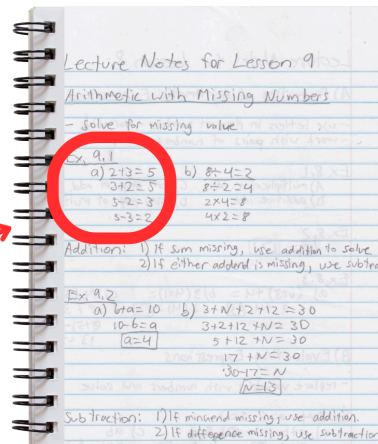 Lecture Notes for Lesson 9
Arithmetic with Missing Numbers
- Solve for missing value
Ex. 9.1
a) 2+3=5 b) 8÷4=2
3+2=5 8÷2=4
5-2=3 2x4=8
5-3=2 4x2=8
Addition: 1) If sum missing, use addition to solve
2) If either addend is missing, use subtra
Ex. 9.2
a) 6+a=10 b) 3+N+2+12=30
10-6=a 3+2+12+N=30
a=4 5+12+N=30
17+N=30
30-17=N
N=13
Subtraction: 1) If minuend missing, use addition.
2) If difference missing, use subtraction